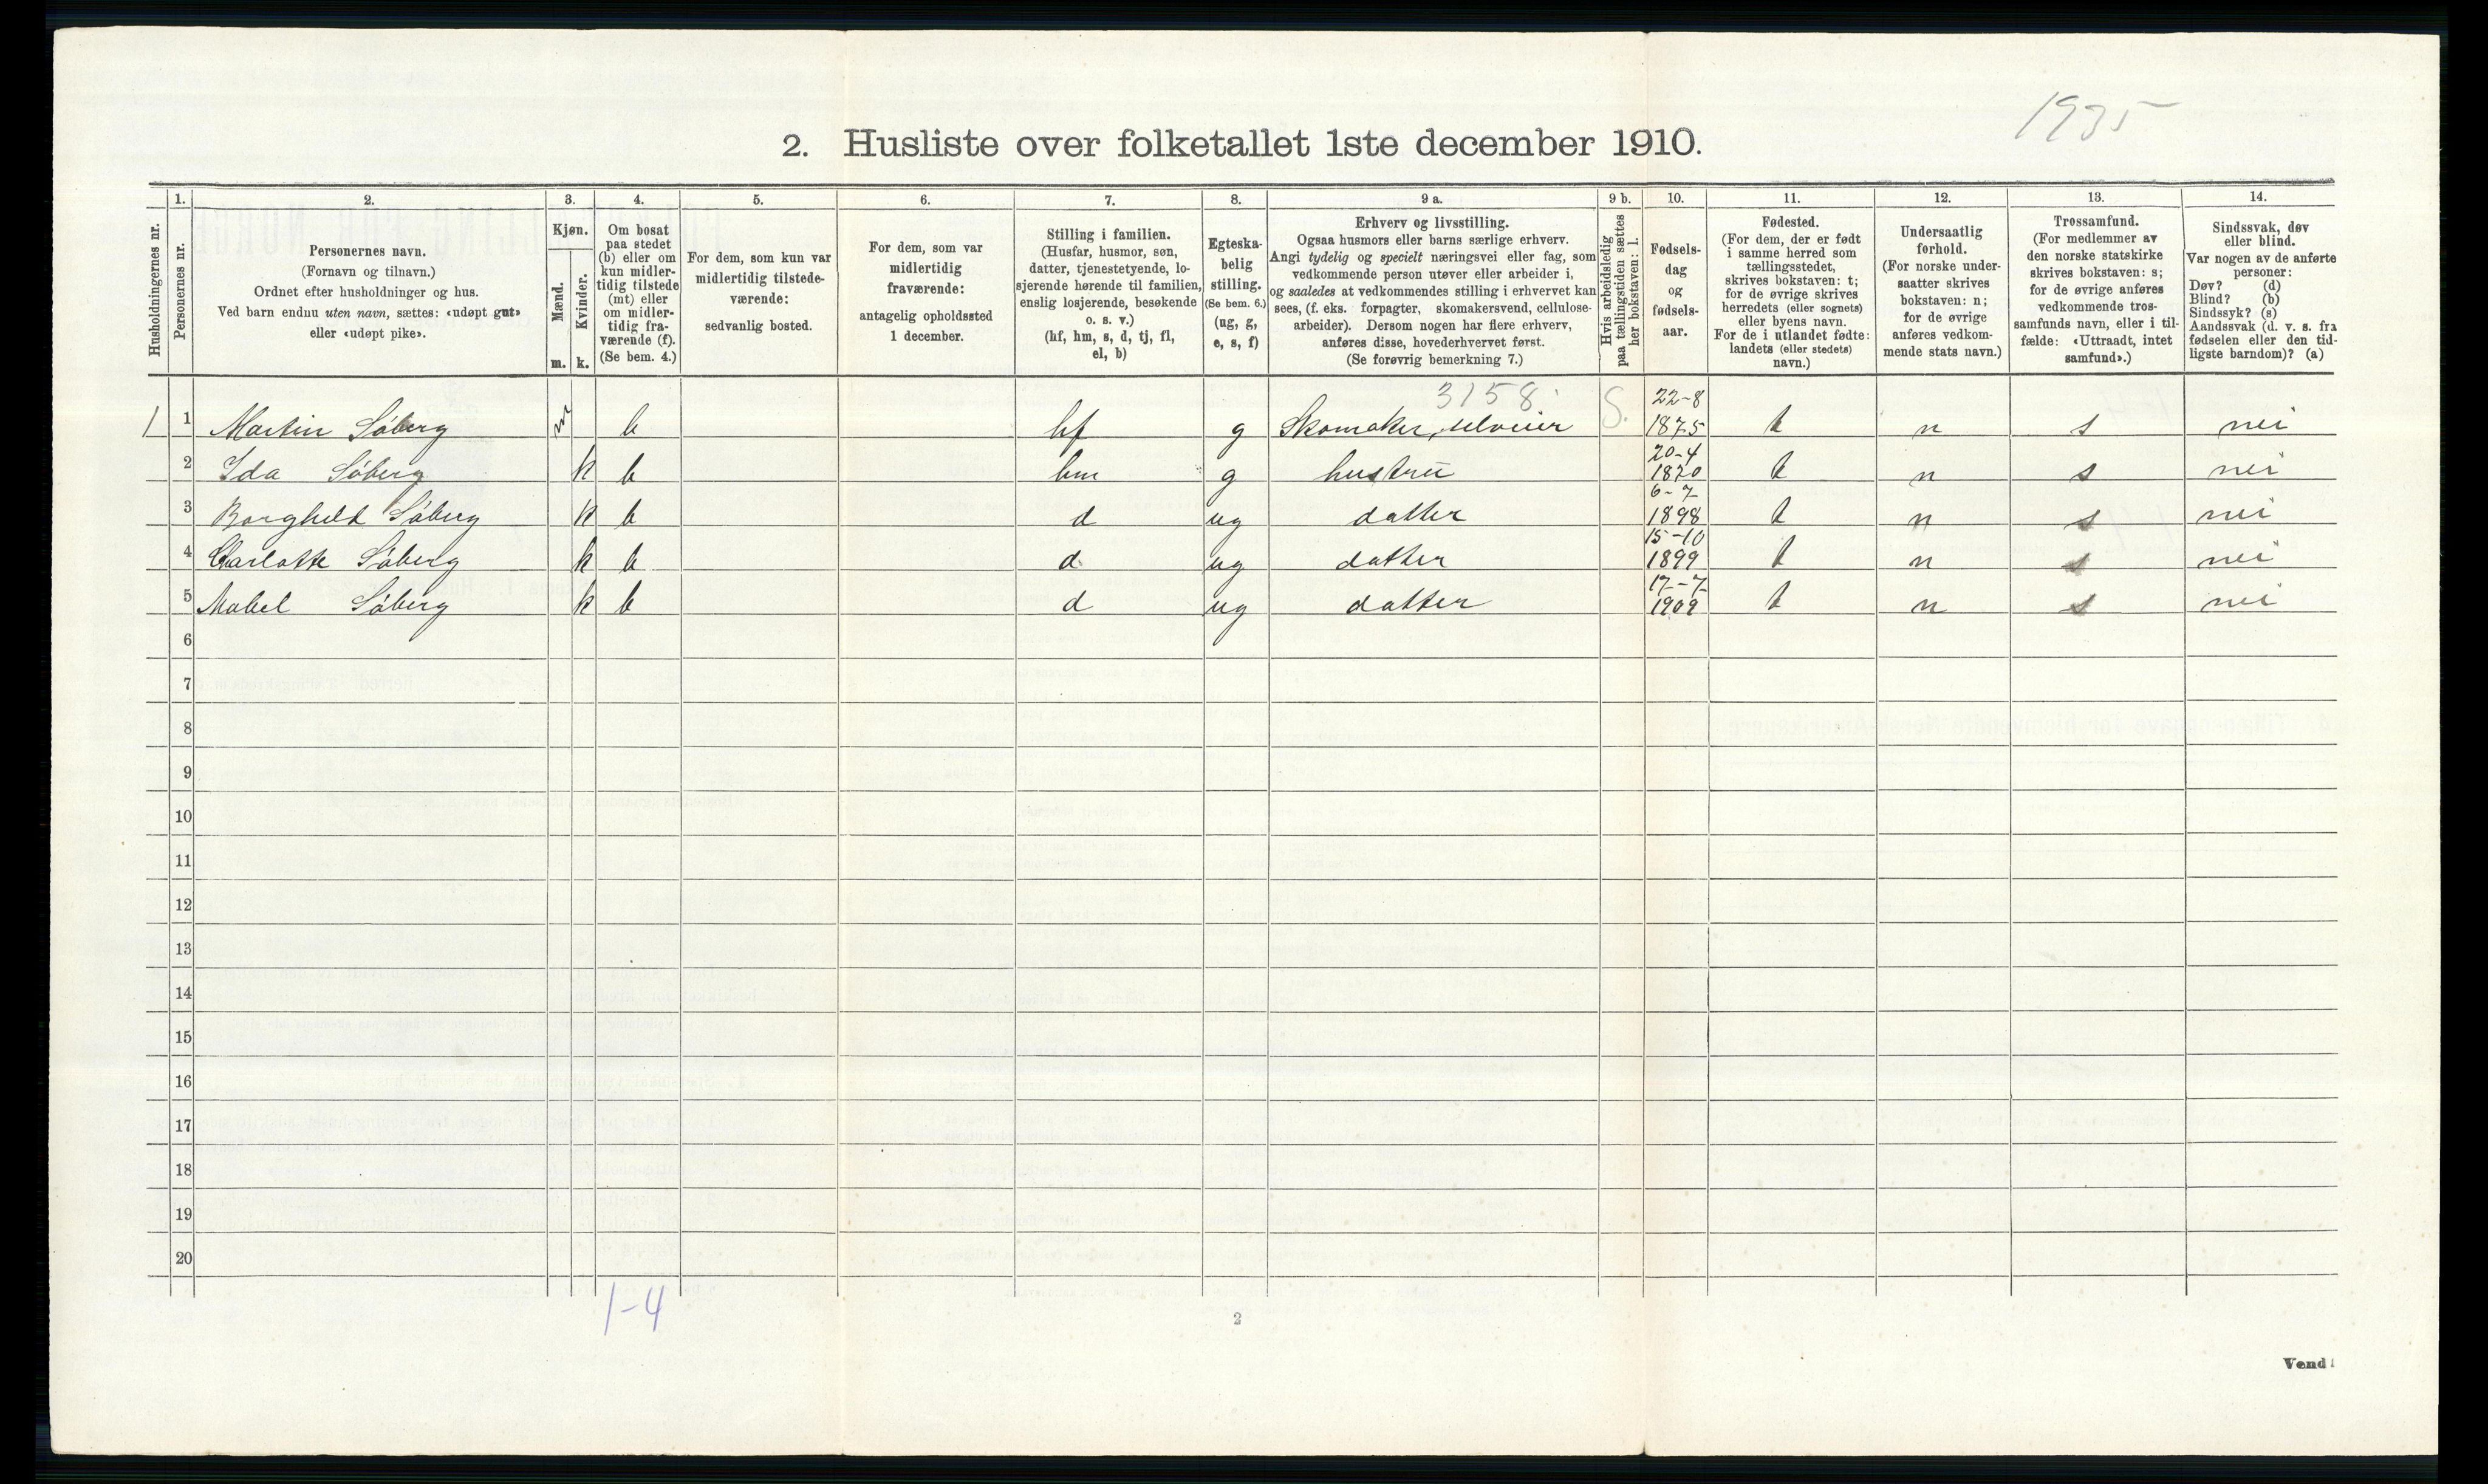 1935
2. Husliste over folketallet 1ste december 1910.
1. 2. 3. 4. 5. 6. 7. 8. 9 a. 9 b. 10. 11. 12. 13. 14.
Husholdningernes nr.
Personernes nr.
Personernes navn.
(Fornavn og tilnavn.)
Ordnet efter husholdninger og hus.
Ved barn endnu uten navn, sættes: «udøpt gut»
eller «udøpt pike».
Kjøn.
Mænd.
Kvinder.
m. k.
Om bosat
paa stedet
(b) eller om
kun midler-
tidig tilstede
(mt) eller
om midler-
tidig fra-
værende (f).
(Se bem. 4.)
For dem, som kun var
midlertidig tilstede-
værende:
sedvanlig bosted.
For dem, som var
midlertidig
fraværende:
antagelig opholdssted
1 december.
Stilling i familien.
(Husfar, husmor, søn,
datter, tjenestetyende, lo-
sjerende hørende til familien,
enslig losjerende, besøkende
o. s. v.)
(hf, hm, s, d, tj, fl,
el, b)
Egteska-
belig
stilling.
(Se bem. 6.)
(ug, g,
e, s, f)
Erhverv og livsstilling.
Ogsaa husmors eller barns særlige erhverv.
Angi tydelig og specielt næringsvei eller fag, som
vedkommende person utøver eller arbeider i,
og saaledes at vedkommendes stilling i erhvervet kan
sees, (f. eks. forpagter, skomakersvend, cellulose-
arbeider). Dersom nogen har flere erhverv,
anføres disse, hovederhvervet først.
(Se forøvrig bemerkning 7.)
Hvis arbeidsledig
paa tællingstiden sættes
her bokstaven: l.
Fødsels-
dag
og
fødsels-
aar.
Fødested.
(For dem, der er født
i samme herred som
tællingsstedet,
skrives bokstaven: t;
for de øvrige skrives
herredets (eller sognets)
eller byens navn.
For de i utlandet fødte:
landets (eller stedets)
navn.)
Undersaatlig
forhold.
(For norske under-
saatter skrives
bokstaven: n;
for de øvrige
anføres vedkom-
mende stats navn.)
Trossamfund.
(For medlemmer av
den norske statskirke
skrives bokstaven: s;
for de øvrige anføres
vedkommende tros-
samfunds navn, eller i til-
fælde: «Uttraadt, intet
samfund».)
Sindssvak, døv
eller blind.
Var nogen av de anførte
personer:
Døv? (d)
Blind? (b)
Sindssyk? (s)
Aandssvak (d. v. s. fra
fødselen eller den tid-
ligste barndom)? (a)
3158 S. 22-8
1 1 Martin Søberg m b hf g Skomaker, selveier 1875 t n s nei
20-4
2 Ida Søberg k b hm g hustru 1870 t n s nei
6-7
3 Borghild Søberg k b d ug datter 1898 t n s nei
15-10
4 Charlotte Søberg k b d ug datter 1899 t n s nei
17-7
5 Mabel Søberg k b d ug datter 1909 t n s nei
6
7
8
9
10
11
12
13
14
15
16
17
18
19
20
1-4
2
Vend!